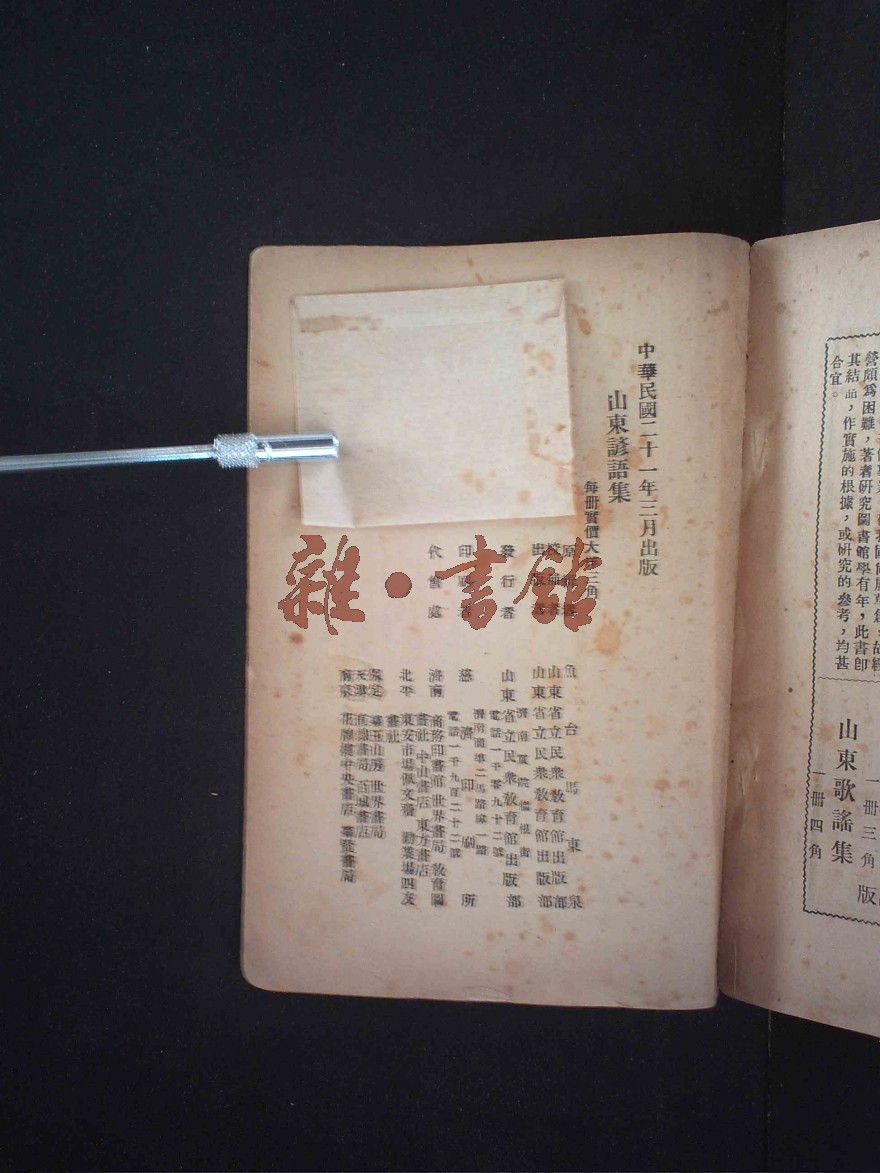 營頗爲困難,著者研究圖書館學有年,此書卽
其結晶,作實施的根據,或研究的參考,均甚
合宜。
一册三角
山東歌謠集
一册四角
版
中華民國二十一年三月出版
山東諺語集
每冊實價大洋三角
魚台馬東泉
山東省立民衆敎育館出版部
出版者 山東省立民衆敎育館出版部
發行者 山東省立民衆敎育館出版部
電話一千零九十二號
印刷者 慈濟印刷所
濟南商埠二馬路緯一路
電話一千九百二十二號
代售處
濟南 商務印書館 世界書局 敎育圖
書社 中山書店 東方書店
北平 東安市場佩文齋 勸業場四友
書社
保定
天津
南京 花牌樓中央書店
雜·書館